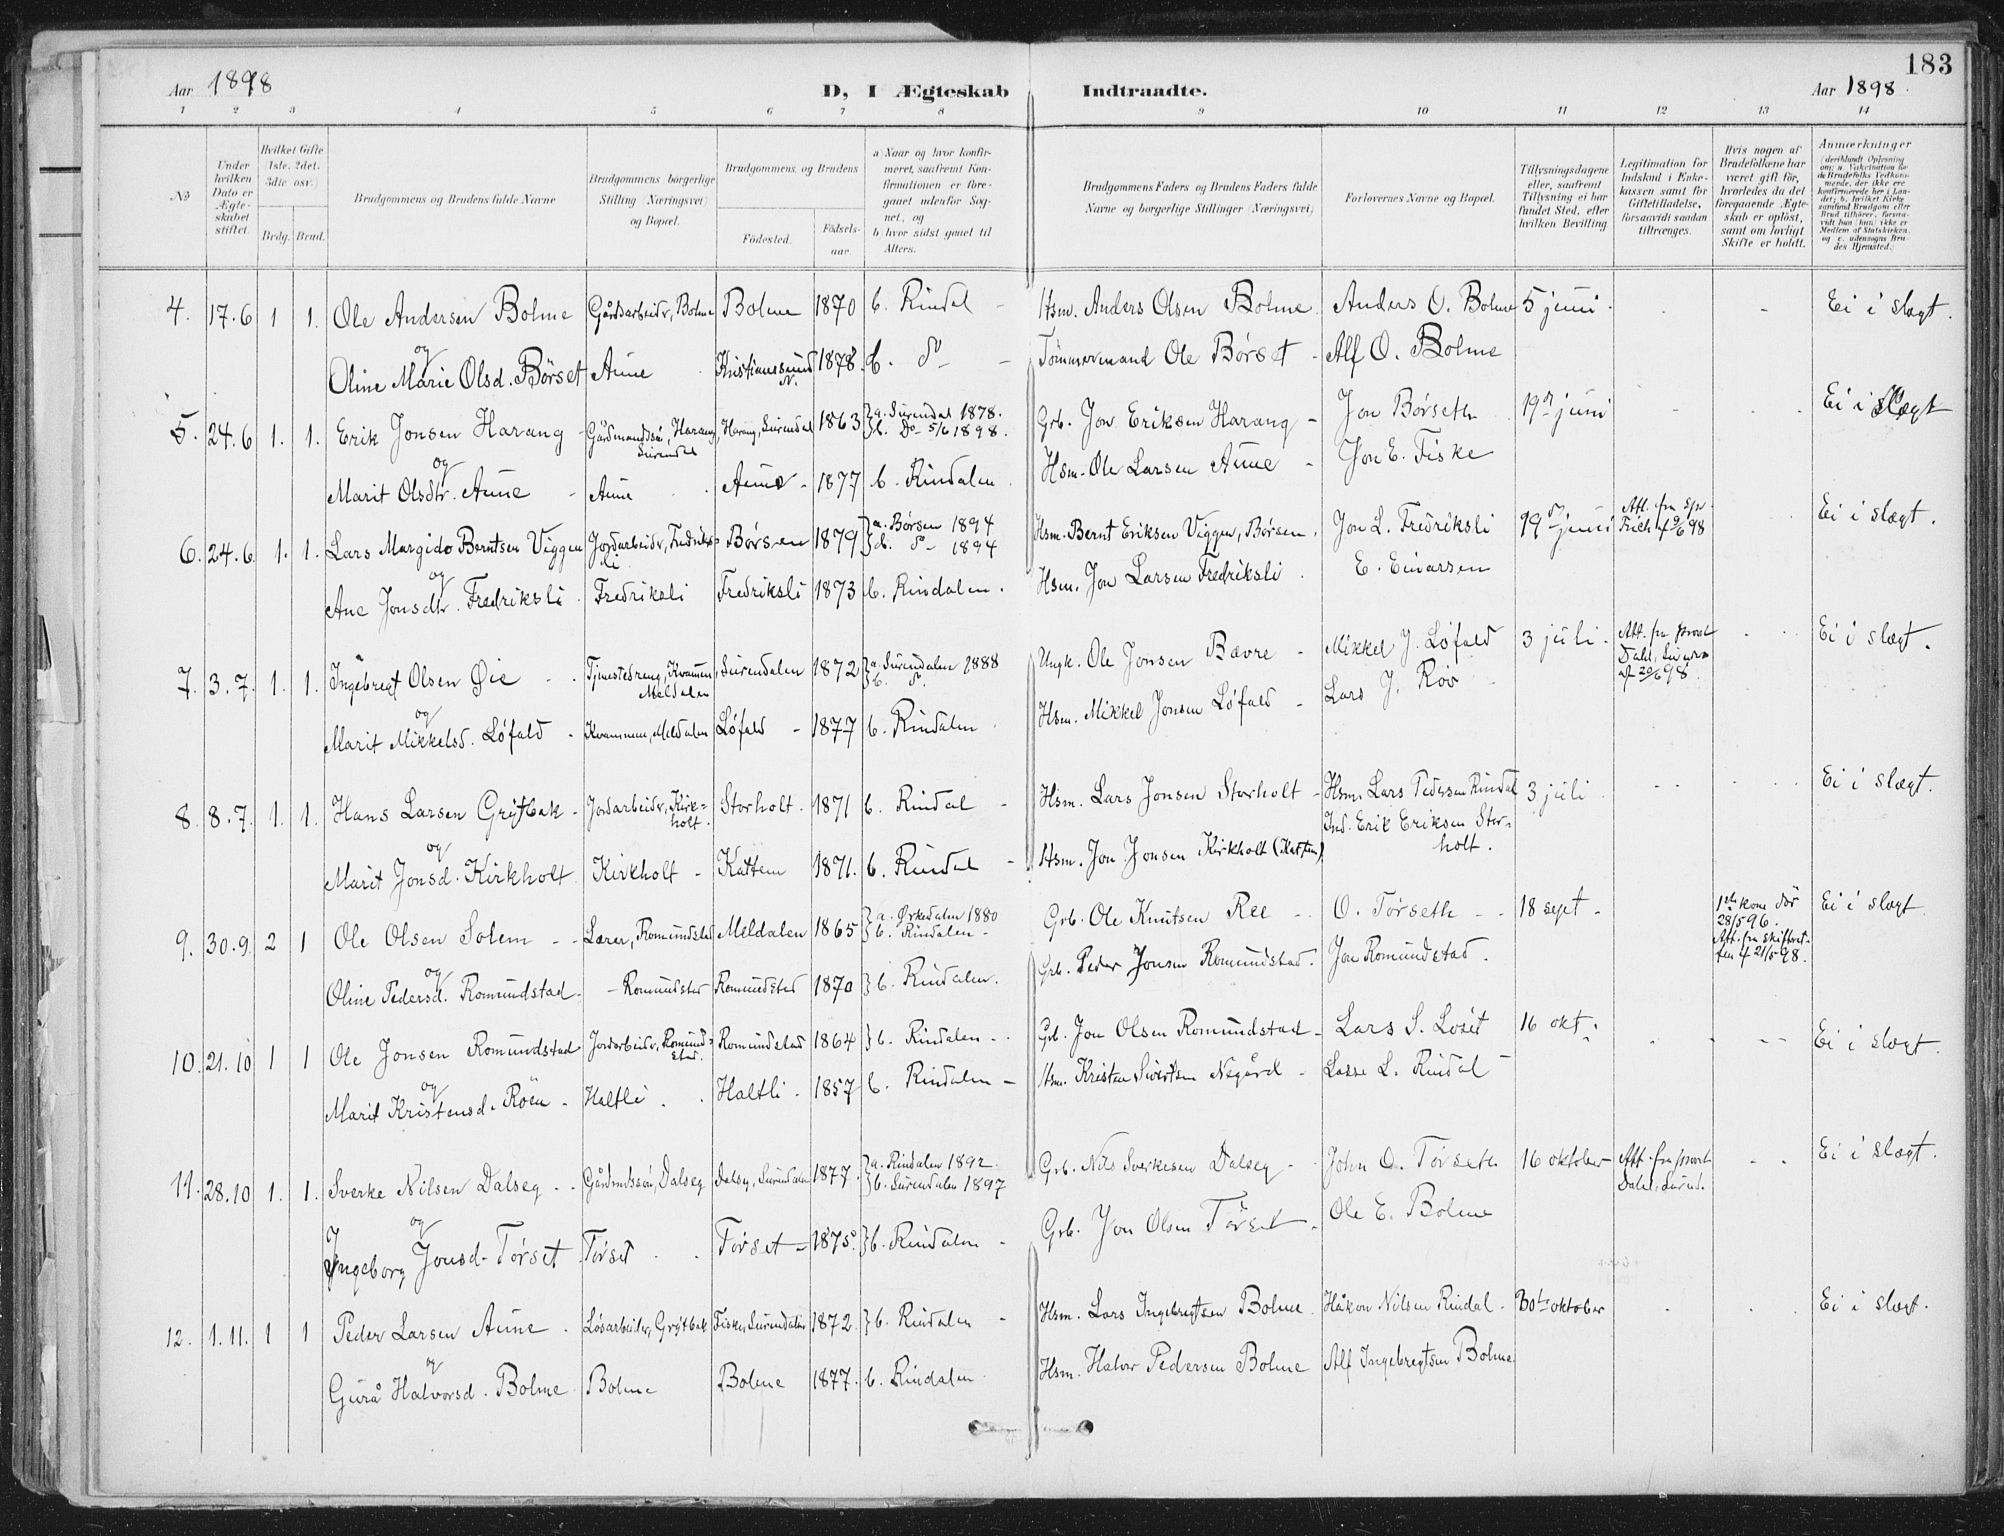 183
Aar 1898 D, I Ægteskab Indtraadte. Aar 1898.
1 2 3 4 5 6 7 8 9 10 11 12 13 14
No
Under hvilken Dato er Ægteskabet stiftet.
Hvilket Gifte (1ste, 2det, 3die osv.)
Brdg. Brud.
Brudgommens og Brudens fulde Navne
Brudgommens borgerlige Stilling (Næringsvei) og Bopæl.
Brudgommens og Brudens
Fødested. Fødselsaar.
a) Naar og hvor konfirmeret, saafremt Konfirmationen er foregaaet udenfor Sognet, og
b) hvor sidst gaaet til Alters.
Brudgommens Faders og Brudens Faders fulde Navne og borgerlige Stillinger (Næringsvei)
Forlovernes Navne og Bopæl.
Tillysningsdagene eller, saafremt Tillysning ei har fundet Sted, efter hvilken Bevilling
Legitimation for Indskud i Enkekassen samt for Giftetilladelse, forsaavidt saadan tiltrænges.
Hvis nogen af Brudefolkene har været gift før, hvorledes da det foregaaende Ægteskab er opløst, samt om lovligt Skifte er holdt.
Anmærkninger
4. 17.6 1 1. Ole Andersen Bolme Gårdsarbeider, Bolme Bolme 1870 b. Rindal - Hsm. Anders Olsen Bolme. Anders O. Bolme 5 juni. Ei i slægt.
og
Oline Marie Olsd. Børset Aune Kristianssund N. 1878. b. do - Tømmermand Ole Børset - Alf O. Bolme
5. 24.6 1. 1. Erik Jonsen Harang - Gårdmandssøn, Harang Surendal Harang, Surendal 1863 a. Surendal 1878. b. Do 5/6 1898. Grb. Jon Eriksen Harang - Jon Børseth 19de juni Ei i slægt
og
Marit Olsdtr. Aune - Aune Aune - 1877 b. Rindalen. Hsm. Ole Larsen Aune - Jon E. Fiske
6. 24.6. 1. 1. Lars Margido Berntsen Viggen Jordarbeider, Fredriksli Børsen 1879 a. Børsen 1894 b. do - 1894 Hsm. Bernt Eriksen Viggen, Børsen. Jon L. Fredriksli 19de juni Ei i slægt.
og
Ane Jonsdtr. Fredriksli. Fredriksli Fredriksli 1873 b. Rindalen. Hsm. Jon Larsen Fredriksli. E. Einarsen
7. 3.7. 1. 1. Ingebregt Olsen Øie - Tjenestedreng, Kvammen, Meldalen Surendalen 1872 a. Surendalen 1888 b. do Ungk. Ole Jonsen Bævre - Mikkel J. Løfald 3 juli. Att. fra provst Dahl, 20/6 98. Ei i slægt.
og
Marit Mikkelsd. Løfald - Kvammen, Meldalen Løfald - 1877 b. Rindalen Hsm. Mikkel Jonsen Løfald - Lars J. Røv
8. 8.7. 1. 1. Hans Larsen Grytbak - Jordarbeider, Kirkholt. Storholt. 1871 b. Rindal - Hsm. Lars Jonsen Storholt - Hsm. Lars Pedersen Rindal 3 juli. Ei i slægt.
Ind. Erik Eriksen Storholt.
og
Marit Jonsd. Kirkholt Kirkholt - Kattem 1871. b. Rindal - Hsm. Jon Jonsen Kirkholt
9. 30.9. 2 1 Ole Olsen Solem - - Lærer, Romundstad Meldalen 1865 a. Ørkedalen 1880 b. Rindalen - Grb. Ole Knutsen Ree - O. Tørseth - 18 sept - 1ste kone død 28/5 96. Att. fra skifteretten 21/5 98. Ei i slægt
og
Oline Pedersd. Romundstad - - Romundstad Romundstad 1870 b. Rindalen. Grb. Peder Jonsen Romundstad. Jon Romundstad.
10. 21.10 1 1 Ole Jonsen Romundstad Jordarbeider, Romundstad. Romundstad 1864 b. Rindalen - Grb. Jon Olsen Romundstad - Lars S. Loset 16 okt. Ei i slægt.
og
Marit Kristensd. Röen - Haltli. Haltli. 1857 b. Rindalen - Hsm. Kristen Sivertsen Negård - Lasse L. Rindal -
11. 28.10 1. 1. Sverke Nilsen Dalseg - Gårdmdssøn, Dalseg Dalseg, Surendalen 1877. a. Rindalen 1892. b. Surendalen 1897 Grb. Nils Sverkesen Dalseg - John O. Tørseth 16 oktober - Att. fra provst Dahl, Surend. Ei i slægt.
og
Ingeborg Jonsd. Tørset Tørset Tørset - 1875 b. Rindalen - Grb. Jon Olsen Tørset - Ole E. Bolme
12. 1.11. 1 1 Peder Larsen Aune. Løsarbeider, Grytbak Fiske, Surendalen 1872 b. Rindalen - Hsm. Lars Ingebregtsen Bolme Håkon Nilsen Rindal - 30te oktober Ei i slægt.
og
Gurå Halvorsd. Bolme Bolme Bolme 1877. b. Rindalen. Hsm. Halvor Pedersen Bolme Alf Ingebregtsen Bolme